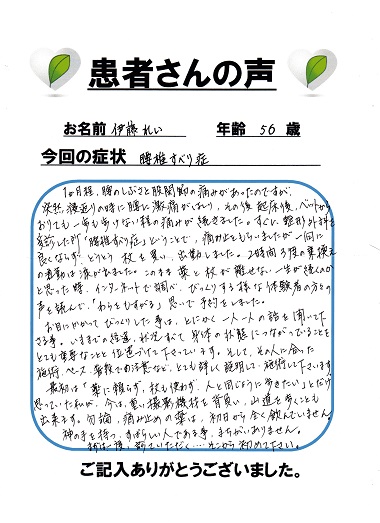 患者さんの声
お名前 伊藤 れい 年齢 56 歳
今回の症状 腰椎すべり症
1ヶ月程、腰のしぶさと股関節の痛みがあったのですが、
突然、寝返りの時に腰に激痛がはしり、その後 起床後、ベットから
おりても一歩も歩けない程の痛みが続きました。すぐに、整形外科を
受診した所「腰椎すべり症」ということで、痛み止をもらいましたが一向に
良くならず、とうとう 杖を買い、出勤しました。2時間3度の乗換え
の通勤は涙が出ました。このまま 薬と杖が離せない一生が続くのか
と思った時、インターネットで調べ、びっくりする様な体験者の方々の
声を読んで、「わらをもすがる」思いで予約をしました。
お目にかかって びっくりした事は、とにかく 一人一人の話を聞いて下
さる事。いままでの経過、状況すべて 身体の状態につながっていることを
とても重要なことと位置づけて下さっています。そして、その人に合った
施術、ペース、普段での注意など、とても詳しく説明して施術して下さいます。
最初は「薬に頼らず、杖も使わず、人と同じように歩きたい」とだけ
思っていた私が、今は、重い撮影機材を背負い、山道も歩くことも
出来ます。勿論、痛み止めの薬は、初日から全く飲んでいません。
神の手を持つ、すばらしい人である事、まちがいありません。
時は一度、診ていただく…そこから初めて下さい。
ご記入ありがとうございました。